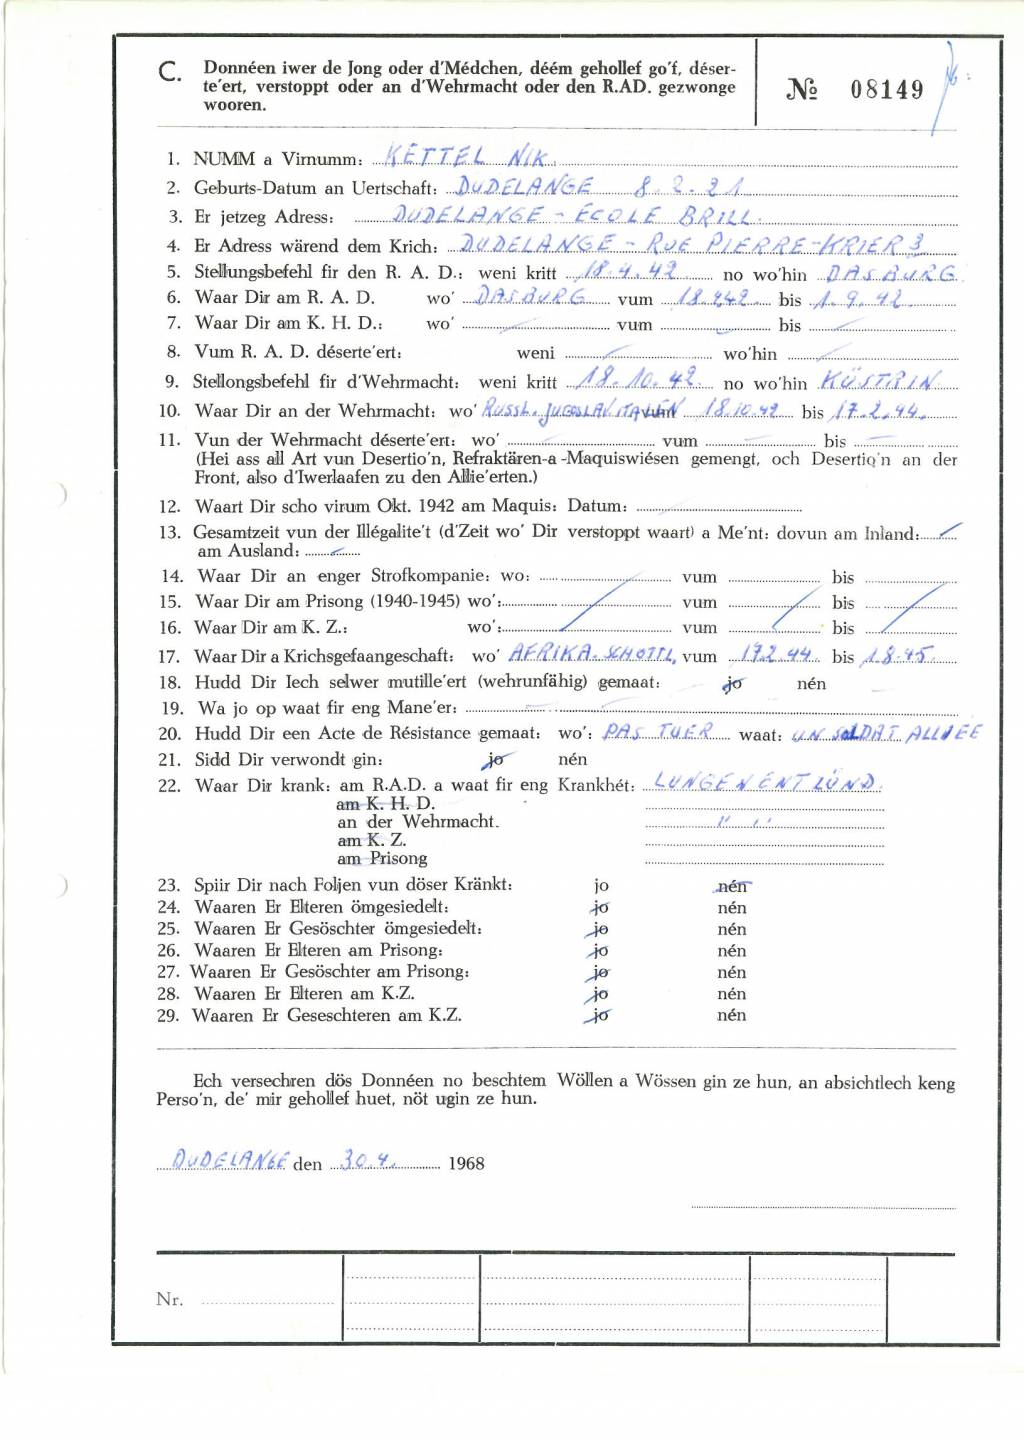 C. Donnéen iwer de Jong oder d'Médchen, déém gehollef go'f, déser-
te'ert, verstoppt oder an d'Wehrmacht oder den R.AD. gezwonge
wooren.
№ 08149
1. NUMM a Virnumm: KETTEL NIK.
2. Geburts-Datum an Uertschaft: DUDELANGE 8.2.21
3. Er jetzeg Adress: DUDELANGE - ECOLE BRILL.
4. Er Adress wärend dem Krich: DUDELANGE - RUE PIERRE-KRIER 3
5. Stellungsbefehl fir den R. A. D.: weni kritt 18.4.42 no wo'hin DASBURG
6. Waar Dir am R. A. D. wo' DASBURG vum 18.242 bis 1.9.42.
7. Waar Dir am K. H. D.: wo' vum bis
8. Vum R. A. D. déserte'ert: weni wo'hin
9. Stellongsbefehl fir d'Wehrmacht: weni kritt 18.10.42. no wo'hin KÜSTRIN
10. Waar Dir an der Wehrmacht: wo' RUSSL. JUGOSLAV ITALIEN vum 18.10.42 bis 17.2.44.
11. Vun der Wehrmacht déserte'ert: wo' vum bis
(Hei ass all Art vun Desertio'n, Refraktären-a -Maquiswiésen gemengt, och Desertio'n an der
Front, also d'Iwerlaafen zu den Allie'erten.)
12. Waart Dir scho virum Okt. 1942 am Maquis: Datum:
13. Gesamtzeit vun der Illégalite't (d'Zeit wo' Dir verstoppt waart) a Me'nt: dovun am Inland:
am Ausland:
14. Waar Dir an enger Strofkompanie: wo: vum bis
15. Waar Dir am Prisong (1940-1945) wo': vum bis
16. Waar Dir am K. Z.: wo': vum bis
17. Waar Dir a Krichsgefaangeschaft: wo' AFRIKA. SCHOTTL. vum 17.2.44. bis 1.8.45.
18. Hudd Dir Iech selwer mutille'ert (wehrunfähig) gemaat: jo nén
19. Wa jo op waat fir eng Mane'er:
20. Hudd Dir een Acte de Résistance gemaat: wo': PAS TUER waat: UN SOLDAT ALLIÉE
21. Sidd Dir verwondt gin: jo nén
22. Waar Dir krank: am R.A.D. a waat fir eng Krankhét: LUNGENENTZÜND.
am K. H. D.
an der Wehrmacht. " "
am K. Z.
am Prisong
23. Spiir Dir nach Foljen vun döser Kränkt: jo nén
24. Waaren Er Elteren ömgesiedelt: jo nén
25. Waaren Er Gesöschter ömgesiedelt: jo nén
26. Waaren Er Elteren am Prisong: jo nén
27. Waaren Er Gesöschter am Prisong: jo nén
28. Waaren Er Elteren am K.Z. jo nén
29. Waaren Er Geseschteren am K.Z. jo nén
Ech versechren dös Donnéen no beschtem Wöllen a Wössen gin ze hun, an absichtlech keng
Perso'n, de' mir gehollef huet, nöt ugin ze hun.
DUDELANGE den 30.4. 1968
Nr.